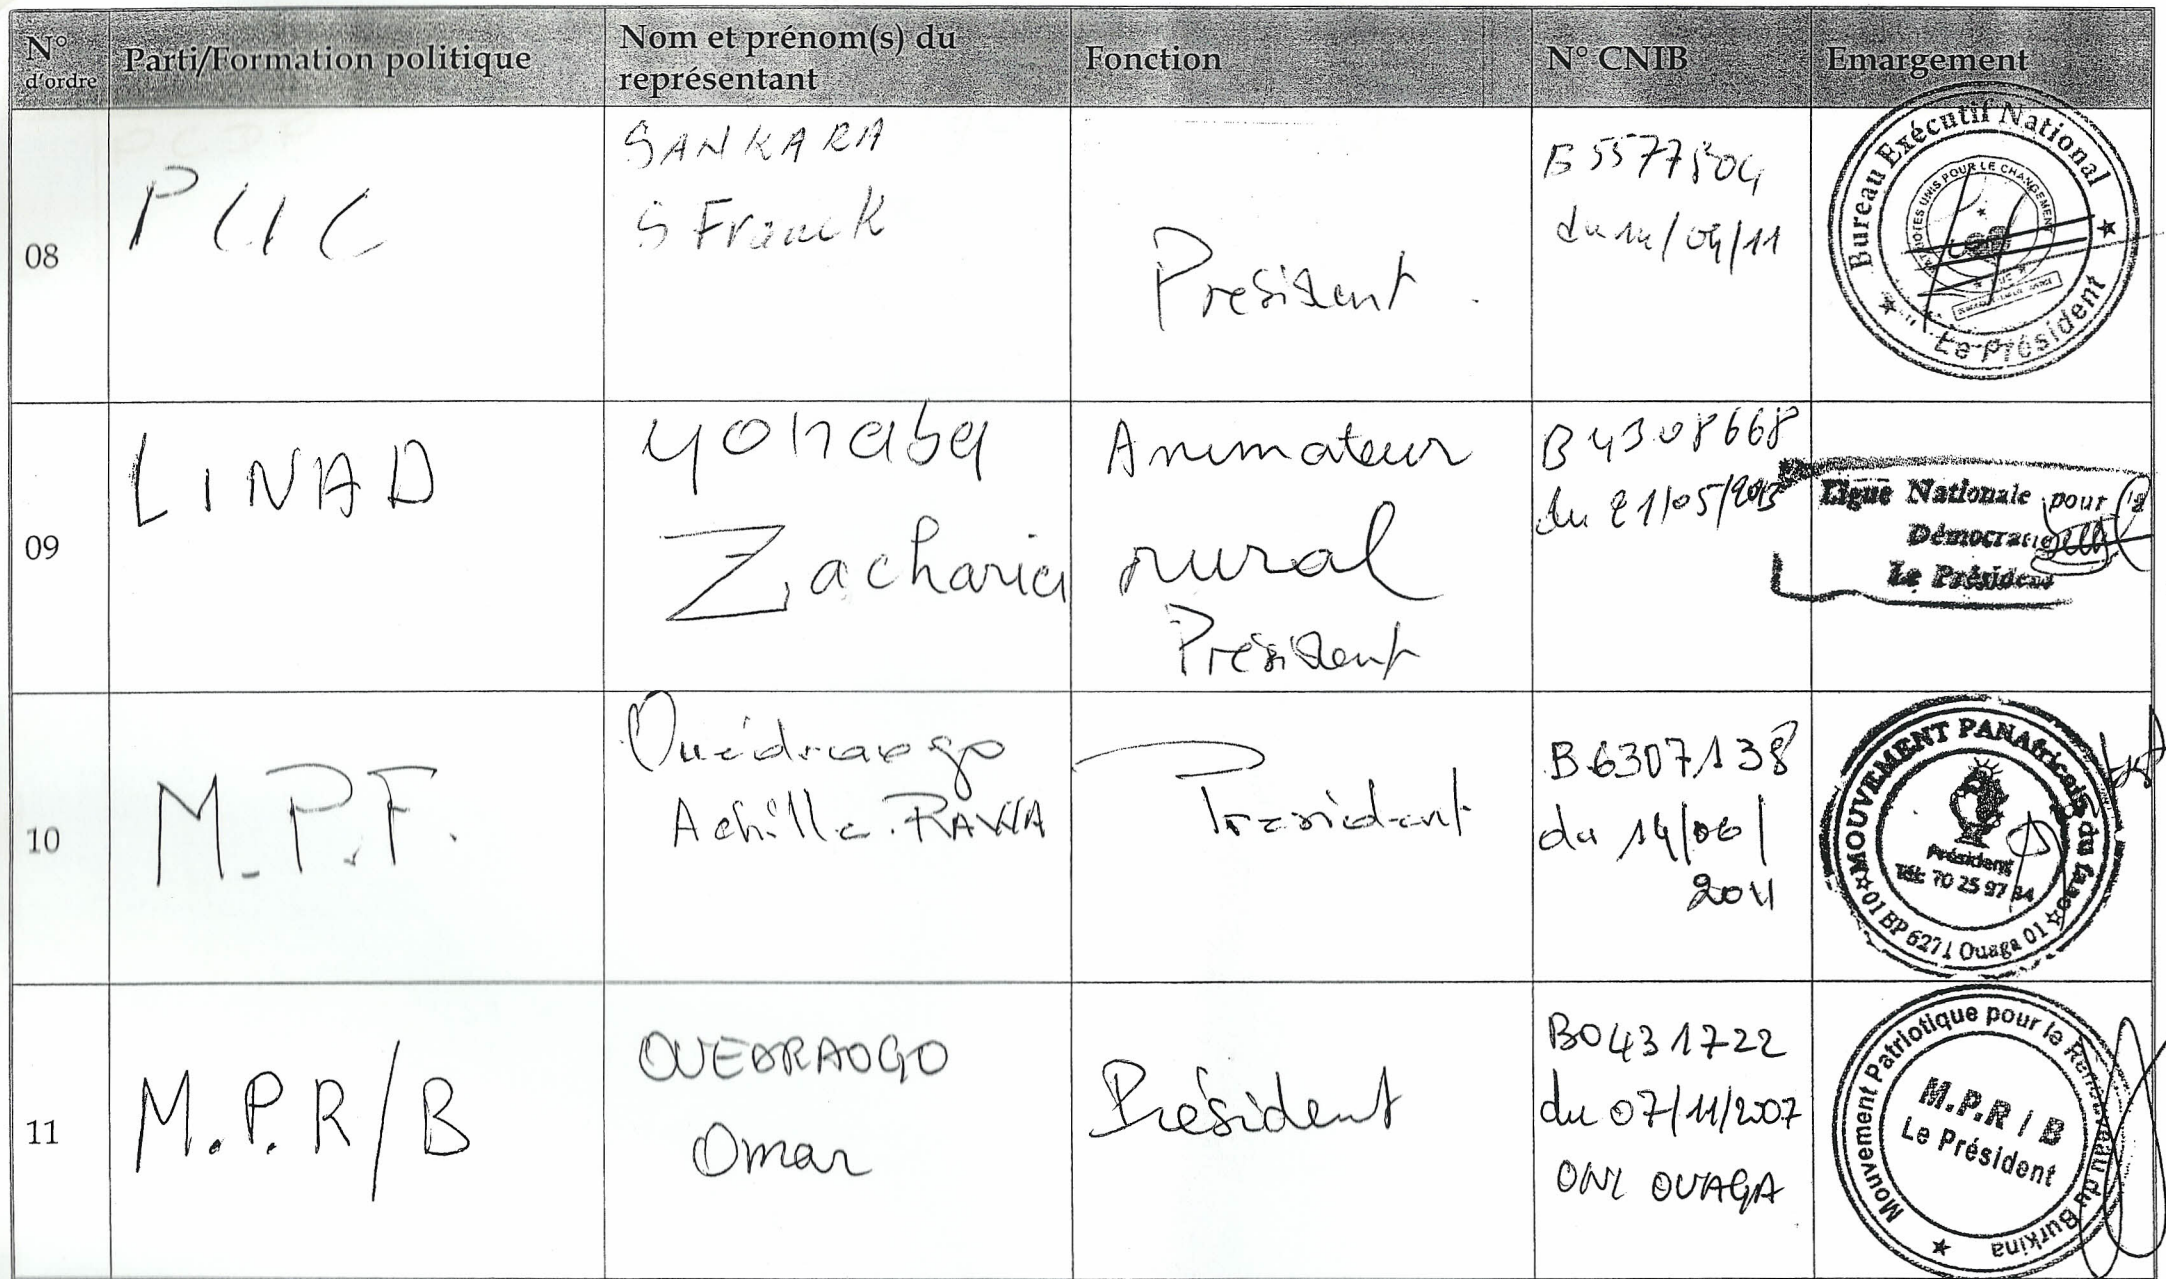 N° d'ordre
Parti/Formation politique
Nom et prénom(s) du représentant
Fonction
N° CNIB
Emargement
08
PUC
SANKARA
S Franck
Président
du 14/04/11
Bureau Exécutif National
PATRIOTES UNIS POUR LE CHANGEMENT
Le Président
09
LINAD
Yohaba
Zacharia
Animateur
rural
Président
B 4308668
du 21/05/2013
Ligue Nationale pour la
Démocratie
Le Président
10
M.P.F.
Ouédraogo
Achille.RAWA
Président
B6307138
du 14/06/
2011
MOUVEMENT PANAfricain du faso
Président
Tél: 70 25 97 34
01 BP 6271 Ouaga 01
11
M.P.R/B
OUEDRAOGO
Omar
Président
B0431722
du 07/11/2007
ONI OUAGA
Mouvement Patriotique pour le Renouveau du Burkina
M.P.R / B
Le Président